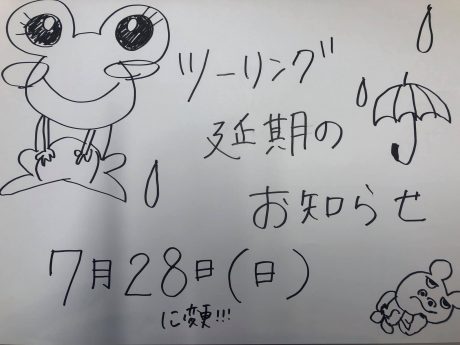 ツーリング
延期の
お知らせ
7月28日(日)
に変更!!!